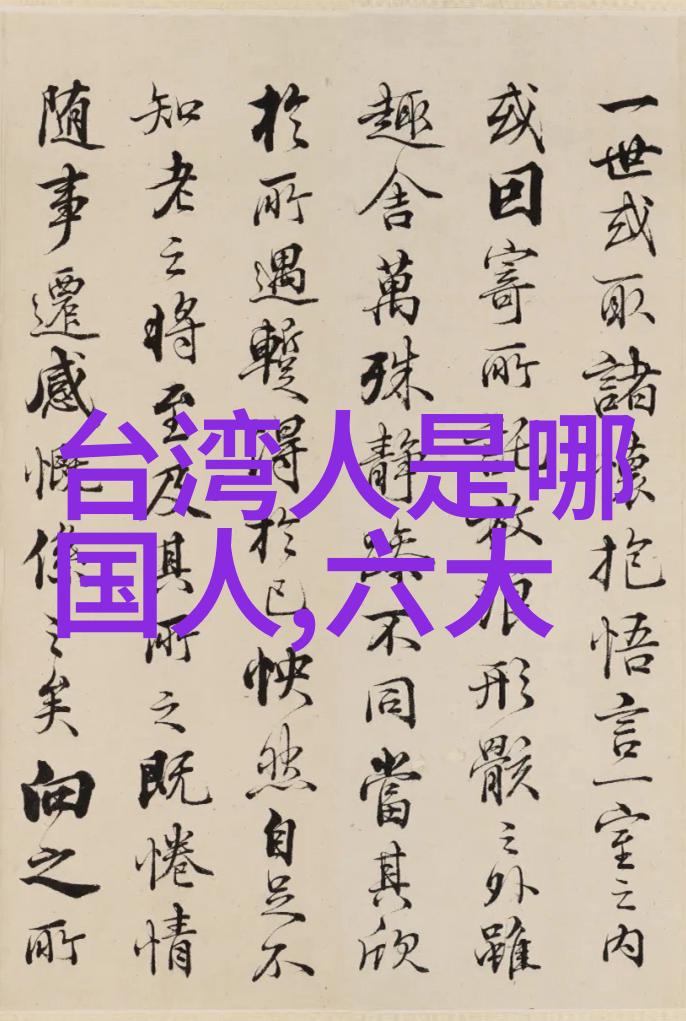 一世或取諸懷抱悟言一室之内
或因寄所託放浪形骸之外雖
趣舍萬殊静躁不同當其欣
於所遇蹔得於己怏然自足不
知老之將至及其所之既惓情
随事遷感慨係之矣向之所
台湾人是哪
国人,六大